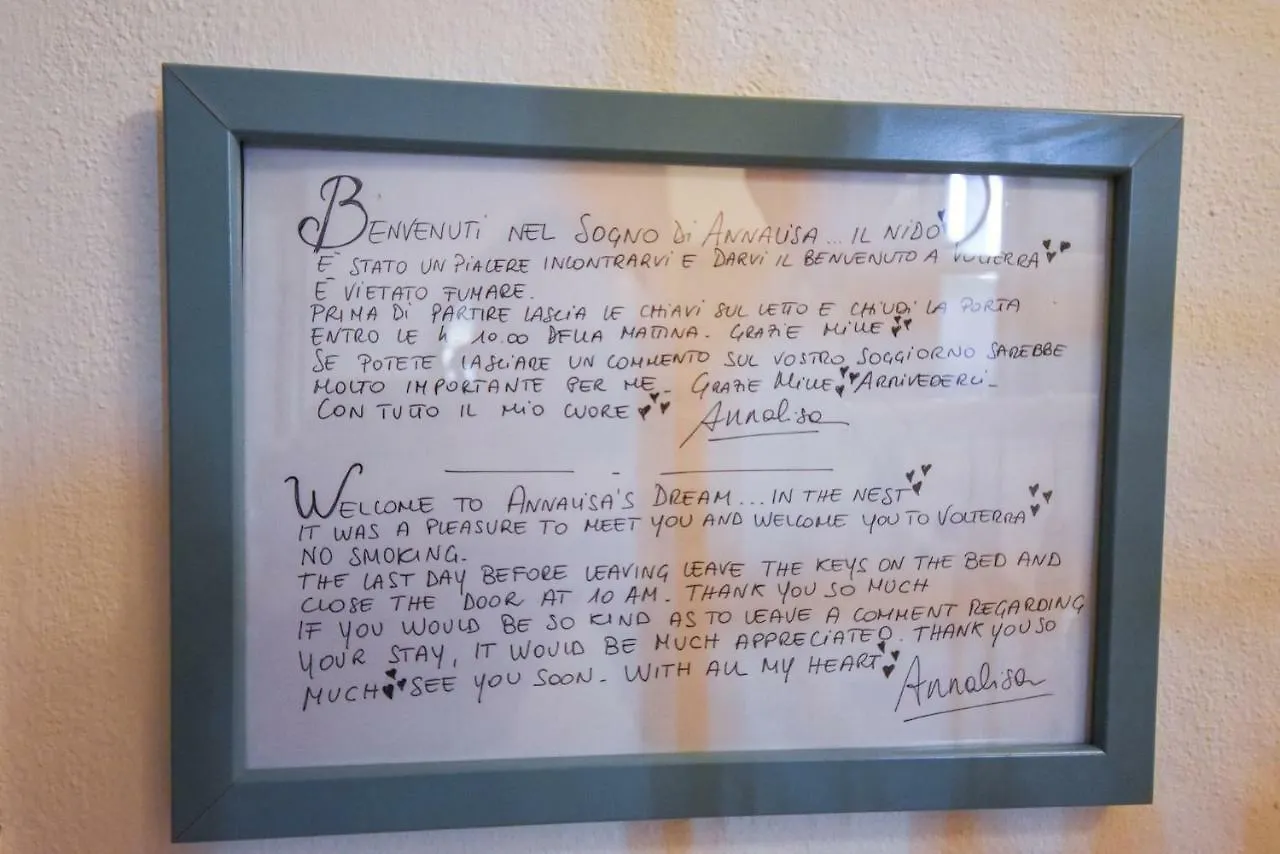 BENVENUTI NEL SOGNO DI ANNALISA... IL NIDO
È STATO UN PIACERE INCONTRARVI E DARVI IL BENVENUTO A VOLTERRA
È VIETATO FUMARE.
PRIMA DI PARTIRE LASCIA LE CHIAVI SUL LETTO E CHIUDI LA PORTA
ENTRO LE h 10.00 DELLA MATTINA. GRAZIE MILLE
SE POTETE LASCIARE UN COMMENTO SUL VOSTRO SOGGIORNO SAREBBE
MOLTO IMPORTANTE PER ME_ GRAZIE MILLE ARRIVEDERCI_
CON TUTTO IL MIO CUORE Annalisa
WELCOME TO ANNALISA'S DREAM... IN THE NEST
IT WAS A PLEASURE TO MEET YOU AND WELCOME YOU TO VOLTERRA
NO SMOKING.
THE LAST DAY BEFORE LEAVING LEAVE THE KEYS ON THE BED AND
CLOSE THE DOOR AT 10 AM. THANK YOU SO MUCH
IF YOU WOULD BE SO KIND AS TO LEAVE A COMMENT REGARDING
YOUR STAY, IT WOULD BE MUCH APPRECIATED. THANK YOU SO
MUCH SEE YOU SOON_ WITH ALL MY HEART Annalisa